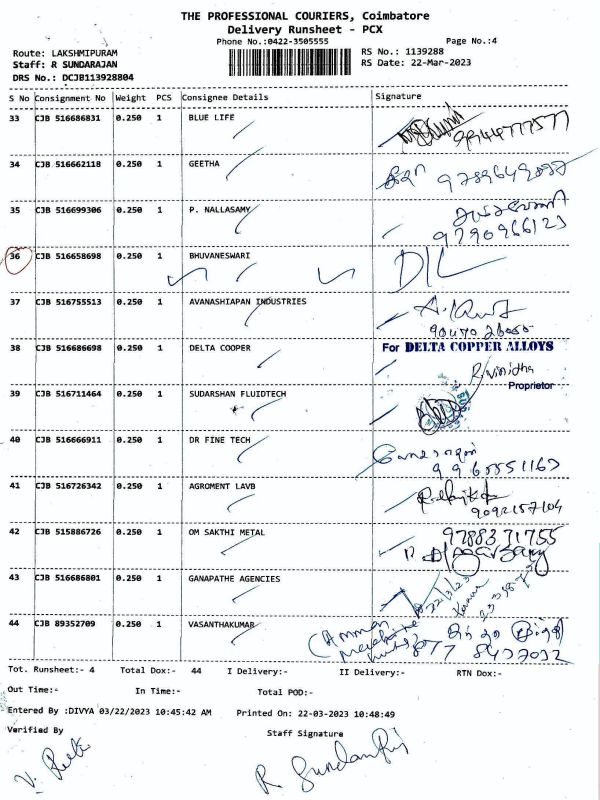 THE PROFESSIONAL COURIERS, Coimbatore
Delivery Runsheet - PCX
Phone No.:0422-3505555 Page No.:4
Route: LAKSHMIPURAM RS No.: 1139288
Staff: R SUNDARAJAN RS Date: 22-Mar-2023
DRS No.: DCJB113928804
S No Consignment No Weight PCS Consignee Details Signature
33 CJB 516686831 0.250 1 BLUE LIFE
34 CJB 516662118 0.250 1 GEETHA
35 CJB 516699306 0.250 1 P. NALLASAMY
9790966123
36 CJB 516658698 0.250 1 BHUVANESWARI D/L
37 CJB 516755513 0.250 1 AVANASHIAPAN INDUSTRIES
38 CJB 516686698 0.250 1 DELTA COOPER For DELTA COPPER ALLOYS
R.Vinidha
Proprietor
39 CJB 516711464 0.250 1 SUDARSHAN FLUIDTECH
40 CJB 516666911 0.250 1 DR FINE TECH
41 CJB 516726342 0.250 1 AGROMENT LAVB
9092157104
42 CJB 515886726 0.250 1 OM SAKTHI METAL 9788371755
43 CJB 516686801 0.250 1 GANAPATHE AGENCIES
22/3/23
44 CJB 89352709 0.250 1 VASANTHAKUMAR
Tot. Runsheet:- 4 Total Dox:- 44 I Delivery:- II Delivery:- RTN Dox:-
Out Time:- In Time:- Total POD:-
Entered By :DIVYA 03/22/2023 10:45:42 AM Printed On: 22-03-2023 10:48:49
Verified By Staff Signature
R. Sundarraj